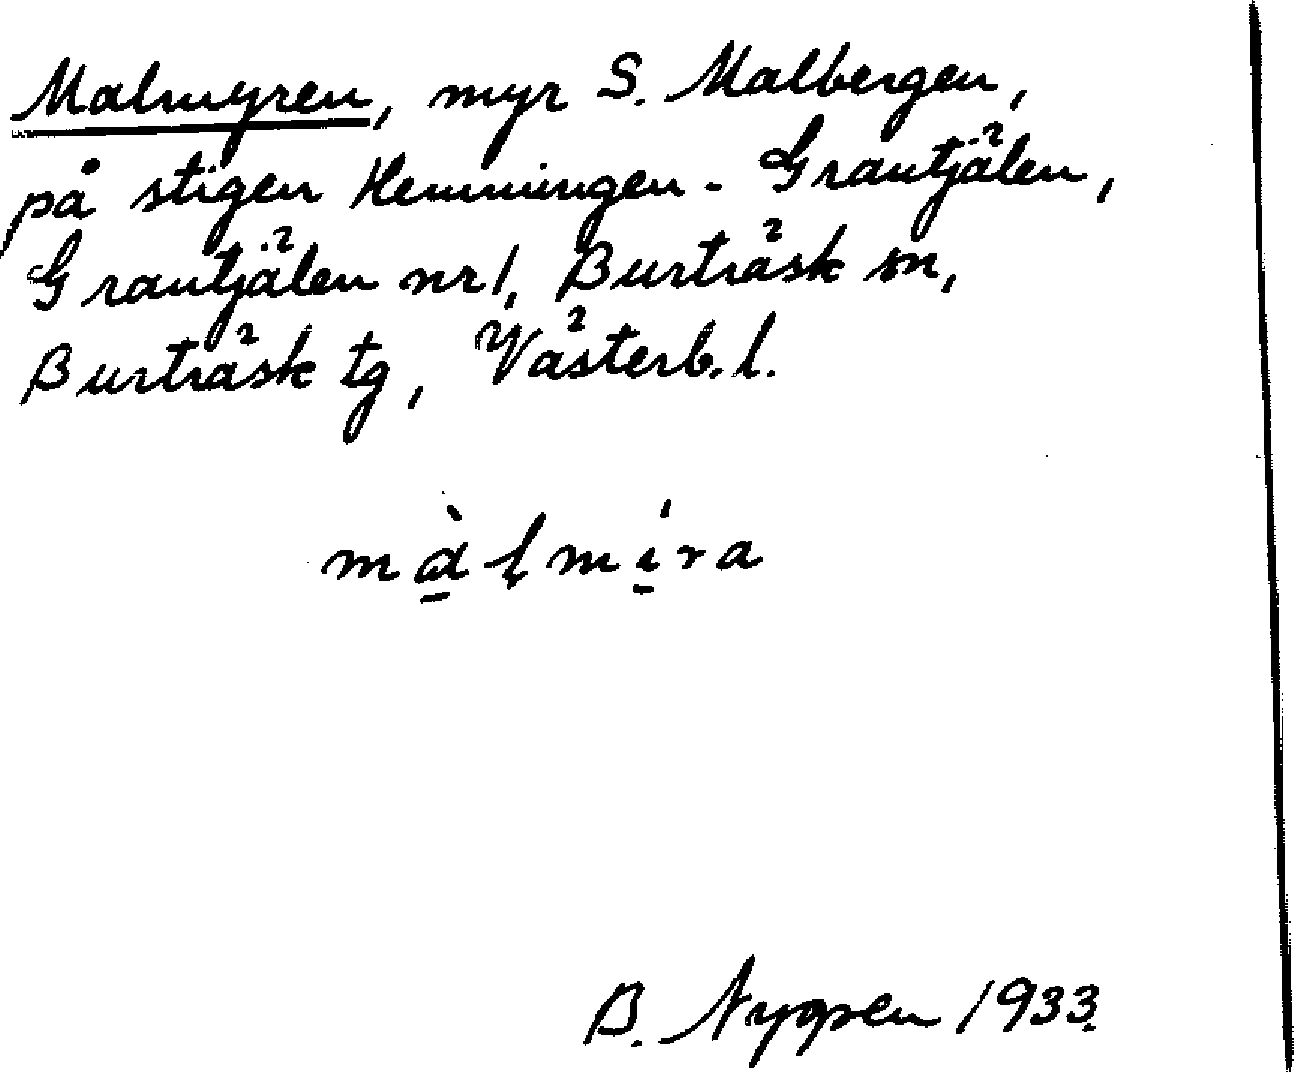 Malmyren, myr S. Malbergen,
på stigen Hemmingen - Grantjälen,
Grantjälen nr 1, Burträsk sn,
Burträsk tg, Västerb. l.
mà̱ḷmí̱ra
B. Nygren 1933.